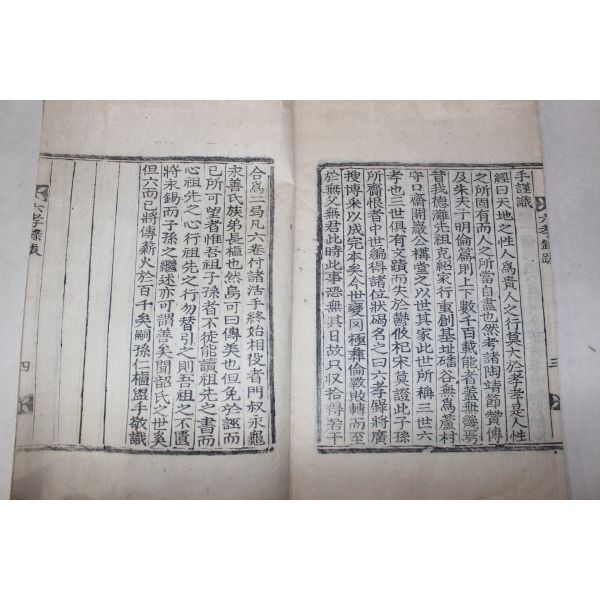 手謹識
經曰天地之性人爲貴人之行莫大於孝孝是人性
之所固有而人之所當自盡也然考諸陶靖節贊傳
及朱夫子明倫篇則上下數千百載能者蓋無幾焉
昔我德灘先祖克紹家行重創基址磻谷無爲盧村
守口齋開巖公構堂之以世其家此世所稱三世六
孝也三世俱有文蹟而失於鬱攸杞宋莫證此子孫
所齎恨者中世編得諸位狀碣名之曰六孝錄將廣
搜博采以成完本矣今世變罔極彝倫斁敗轉而至
於無父無君此時此事恐無其日故只収拾得若干
六孝錄跋
三
合爲二局凡六卷付諸活手終始相役者門叔永龜
永善氏族弟長樞也然烏可曰傳美也但免於誣而
已所可望者惟吾祖子孫者不徒能讀祖先之書而
心祖先之心行祖先之行勿替引之則吾祖先之不匱
將永錫而子孫之繼述亦可謂善矣聞韶氏之世奚
但六而已將傳薪火於百千矣嗣孫仁樞盥手敬識
六孝錄跋
四